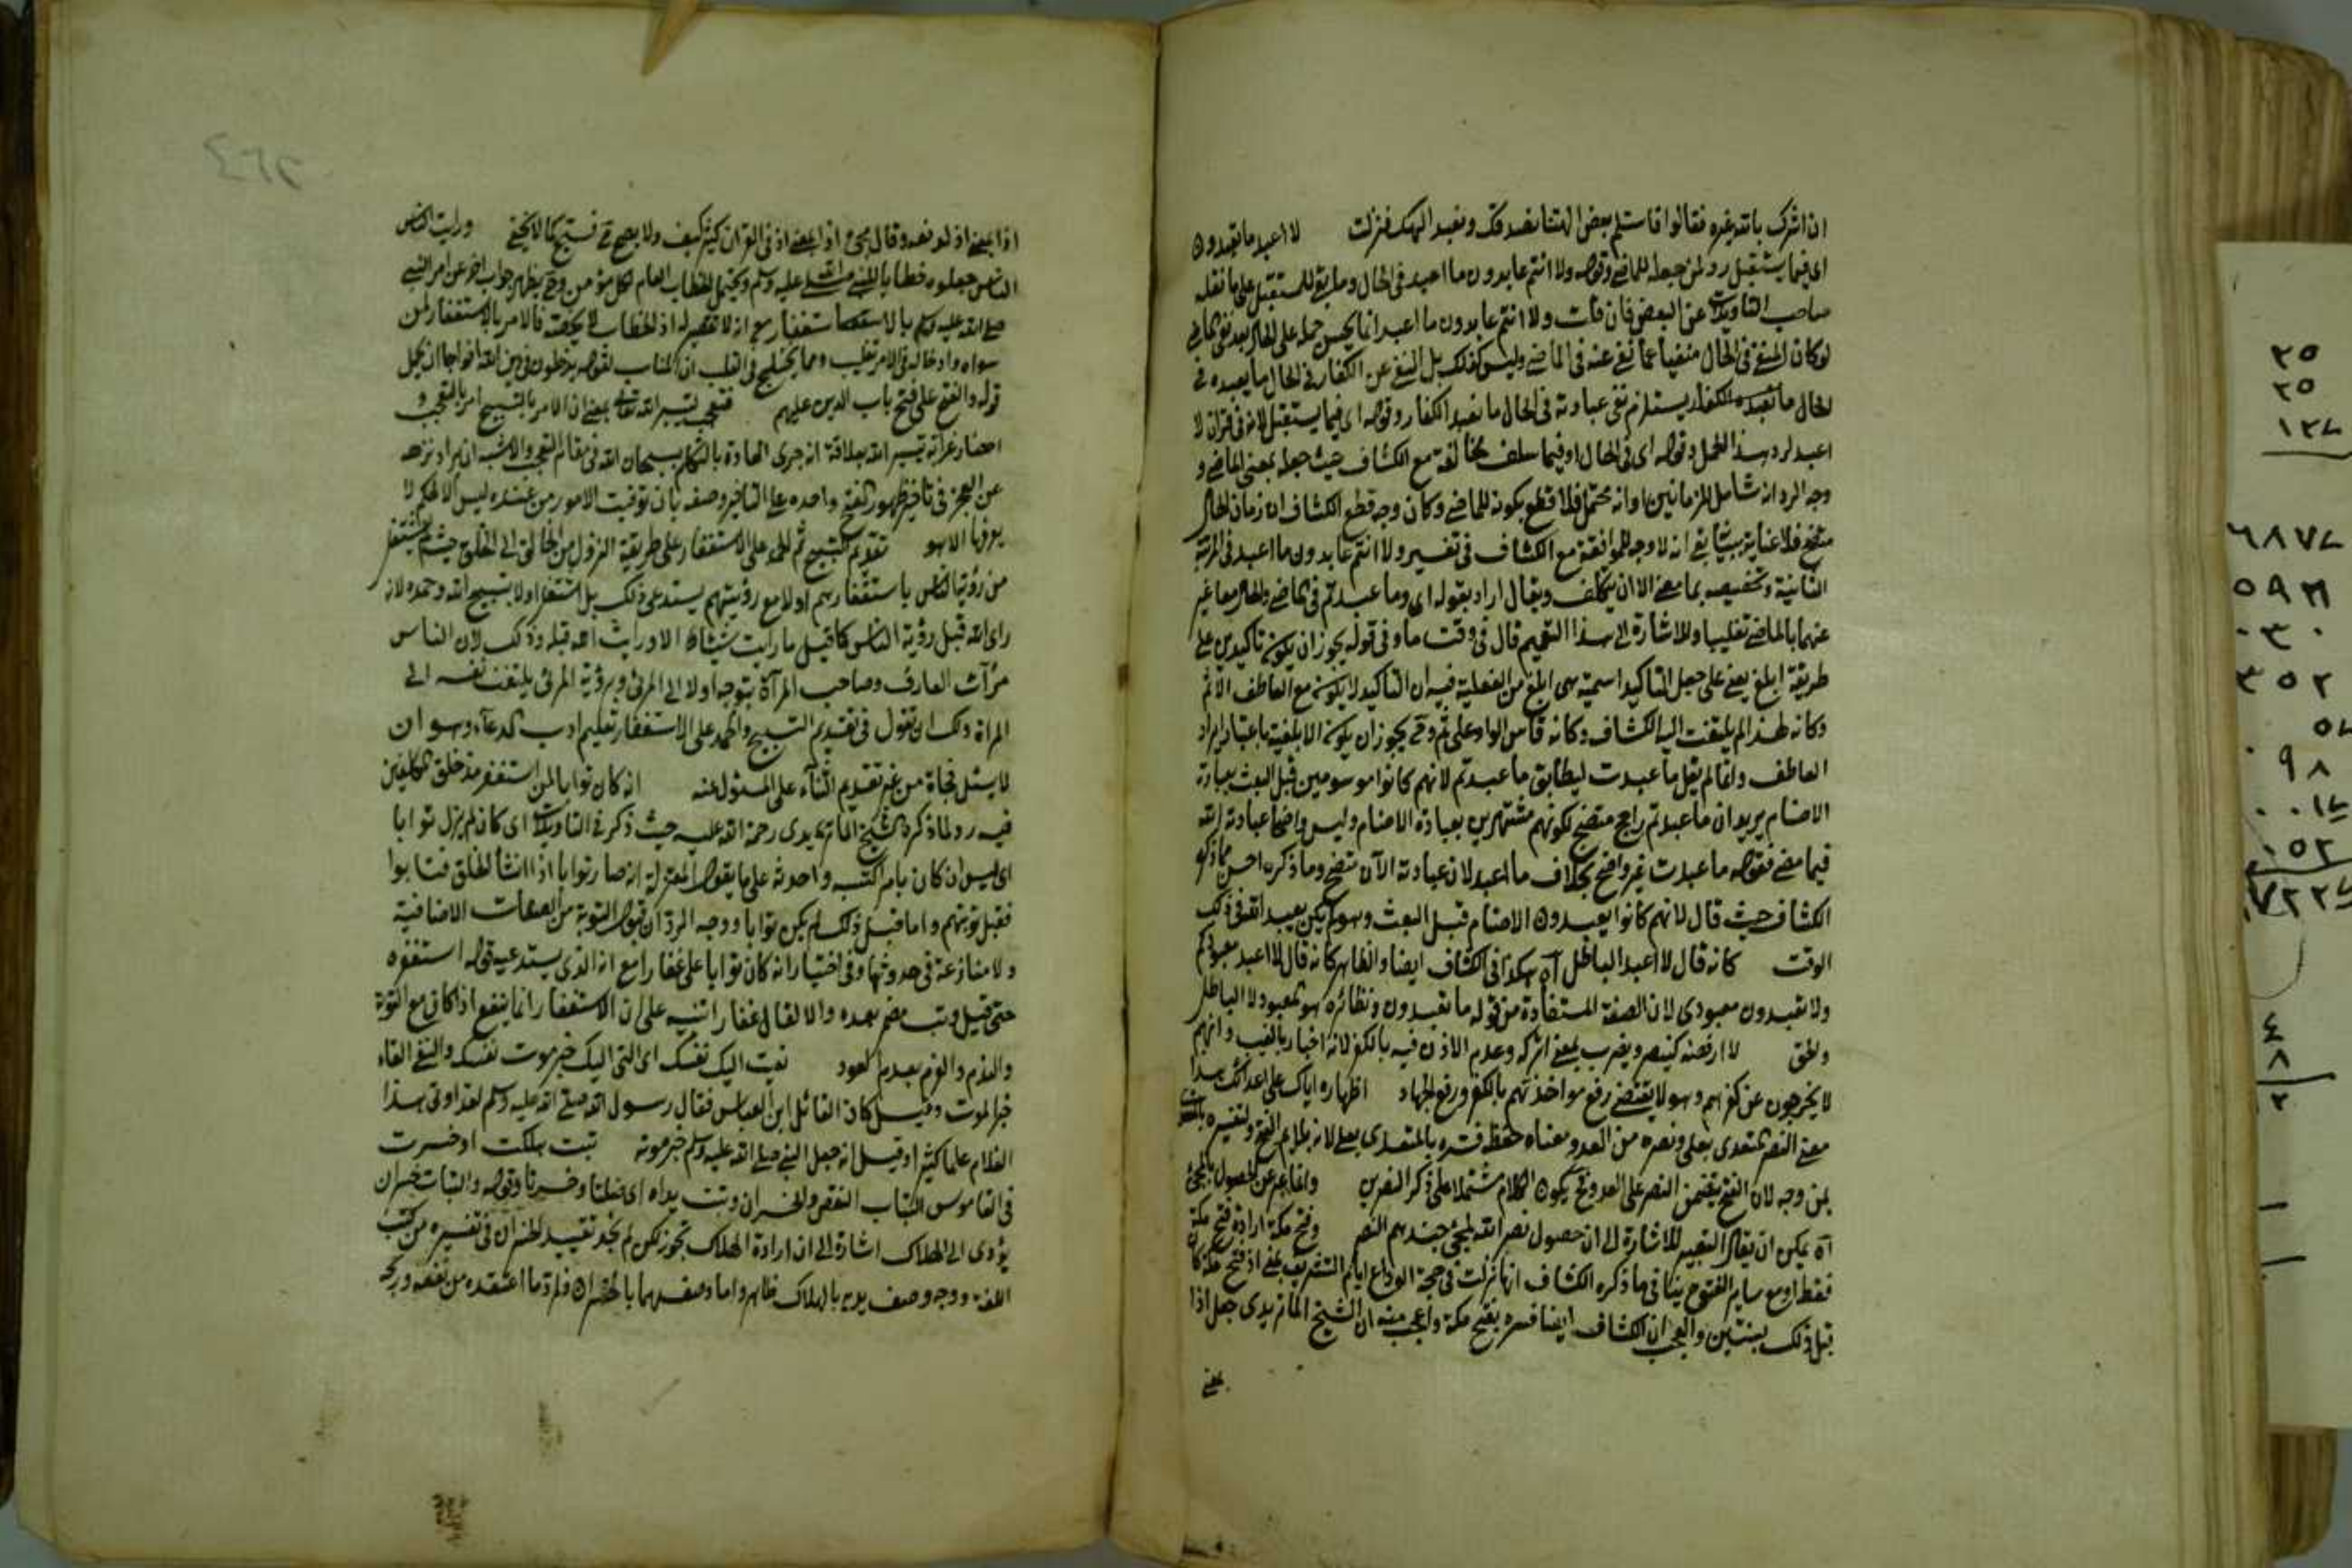 ان اشرك بالله غيره فقالوا فاستلم بعض الهتنا نصدقك ونعبد الهك فنزلت لا اعبد ما تعبدون
اى فيما يستقبل رد لمن جعله للماضى وقوله ولا انتم عابدون ما اعبد فى الحال وما للمستقبل على ما نقله
صاحب التاويلات عن البعض فان قلت ولا انتم عابدون ما اعبد انما يحسن حمله على الحال بعد نفى الماضى
لو كان المنفى فى الحال منفيا عما نفى عنه فى الماضى وليس كذلك بل النفى عن الكفار فى الحال ما يعبده فى
الحال ما تعبده الكفار يستلزم نفى عبادته فى الحال ما نعبد الكفار وقوله اى فيما يستقبل لانه فى قران لا
اعبد لرد هذا المحمل وقوله اى فى الحال او فيما سلف مخالفة مع الكشاف حيث جعله بمعنى الماضى و
وجه الرد انه شامل للزمانين او انه محتمل فلا قطع بكونه للماضى وكان وجه قطع الكشاف ان زمان الحال
فلا عناية انه لا وجه للموافقة مع الكشاف فى تفسير ولا انتم عابدون ما اعبد فى المرتبة
الثانية وتخصيصه بما مضى الا ان يتكلف ويقال اراد بقوله اى وما عبدتم فى الماضى والحال معا غير
عنهما بالماضى تغليبا وللاشارة الى هذا التعميم قال فى وقت ما وفى قوله يجوز ان يكون تاكيدين على
طريقة ابلغ يعنى على جعل التاكيد اسمية هى ابلغ من الفعلية فيه ان التاكيد لا يكون مع العاطف الا ثم
وكانه لهذا لم يلتفت اليه الكشاف وكانه قاس الواو على ثم وقد يجوز ان يكون الابلغية باعتبار ايراد
العاطف وانما لم يقل ما عبدت ليطابق ما عبدتم لانهم كانوا موسومين قبل البعث بعبادة
الاصنام يريد ان ما عبدتم راجح متضح لكونهم مشتهرين بعبادة الاصنام وليس واضحا عبادته لله
فيما مضى فقوله ما عبدت غير واضح بخلاف ما اعبد لان عبادته الآن متضح وما ذكره احسن مما ذكره
الكشاف حيث قال لانهم كانوا يعبدون الاصنام قبل البعث وهو لم يكن يعبد الله فى ذلك
الوقت كانه قال لا اعبد الباطل آه هكذا فى الكشاف ايضا والظاهر كانه قال لا اعبد معبودكم
ولا تعبدون معبودى لان الصفة المستفادة من قوله ما تعبدون ونظائره هو المعبود لا الباطل
والحق لا ارفضه كينصر ويضرب بمعنى اتركه وعدم الاذن فيه بالكفر لانه اخبار بالغيب وانهم
لا يخرجون عن كفرهم وهو لا يقتضى رفع مواخذتهم بالكفر ورفع الجهاد اظهاره اياك على اعدائك هذا
معنى النصر المتعدى بعلى ونصره من العدو معناه حفظ فسره بالمتعدى بعلى لانه يلايم الفتح ولتفسيره
بمن وجه لان الفتح يتضمن النصر على العدو فح يكون الكلام مشتملا على ذكر النصرين وانما عبر عن الحصول بالمجئ
آه يمكن ان يقال التعبير للاشارة الى ان حصول نصر الله لمجئ جندهم النصر وفتح مكة ارادة فتح مكة
فقط او مع ساير الفتوح ينافى ما ذكره الكشاف انها نزلت فى حجة الوداع ايام التشريق بمعنى اذ فتح مكة كان
قبل ذلك بسنتين والعجب ان الكشاف ايضا فسره بفتح مكة واعجب منه ان الشيخ الماتريدى جعل اذا
بمعنى
٢٦٤
اذا بمعنى اذ لو نعد وقال مجئ اذا بمعنى اذ فى القران كثير كيف ولا يصح فى فسبح كما لا يخفى ورايت الناس
الناس جعلوه خطابا للنبى صلى الله عليه وسلم ويحتمل الخطاب العام لكل مؤمن وح يظهر جواب اخر عن امر النبى
صلى الله عليه وسلم بالاستغفار مع انه لا تقصير له اذ الخطاب لا يخصه فالامر بالاستغفار لمن
سواه وادخاله فى الامر تغليب ومما يختلج فى القلب ان المناسب لقوله يدخلون فى دين الله افواجا ان يحمل
قوله والفتح على فتح باب الدين عليهم فتعجب لتيسير الله تعالى يعنى ان الامر بالتسبيح امر بالتعجب و
احضار غرابة تيسير الله بعلاقة انه جرى العادة بالتكلم بسبحان الله فى مقام التعجب والاشبه ان يراد نزهه
عن العجز فى تاخير ظهور الفتح واحمده على التاخير وصفه بان توقيت الامور من عنده ليس الا لحكم لا
يعرفها الا هو تقديم التسبيح ثم الحمد على الاستغفار على طريقة النزول من الخالق الى الخلق حيث لم يشتغل
من رؤية الناس باستغفارهم اولا مع رؤيتهم يستدعى ذلك بل اشتغل اولا بتسبيح الله وحمده لانه
راى الله قبل رؤية الناس كما قيل ما رايت شيئا الا ورايت الله قبله وذلك لان الناس
مرآت العارف وصاحب المرآة يتوجه اولا الى المرئى وبرؤية المرئى يلتفت نفسه الى
المراة ولك ان تقول فى تقديم التسبيح والحمد على الاستغفار تعليم ادب الدعآء وهو ان
لا يسئل فجاة من غير تقديم الثنآء على المسئول عنه انه كان توابا لمن استغفر مذ خلق المكلفين
فيه رد لما ذكره الشيخ الماتريدى رحمة الله عليه حيث ذكر فى التاويلات اى كان لم يزل توابا
اى ليس ان كان بامر اكتسبه واحدثه على ما يقوله المعتزلة انه صار توابا اذا انشأ الخلق فتابوا
فقبل توبتهم واما قبل ذلك لم يكن توابا ووجه الرد ان قبول التوبة من الصفات الاضافية
ولا منازعة فى حدوثها وفى اختيار انه كان توابا على غفارا مع انه الذى يستدعيه قوله استغفره
حتى قيل وتب مضمر بعده والا لقال غفارا تنبيه على ان الاستغفار انما ينفع اذا كان مع التوبة
والندم والعزم بعدم العود نعيت اليك نفسك اى القى اليك خبر موت نفسك والنعى القاء
خبر الموت وقيل كان القائل ابن العباس فقال رسول الله صلى الله عليه وسلم لقد اوتى هذا
الغلام علما كثيرا وقيل انه جعل النبى صلى الله عليه وسلم خبر موته تبت هلكت او خسرت
فى القاموس التباب النقص والخسران وتبت يداه اى ضلتا وخسرتا وقوله والتباب خسران
يؤدى الى الهلاك اشارة الى ان ارادة الهلاك تجوز لكن لم نجد تقييد الخسران فى تفسيره من كتب
اللغة ووجه وصف يديه بالهلاك ظاهر واما وصفهما بالخسران فلرد ما اعتقده من نفعه وربحه